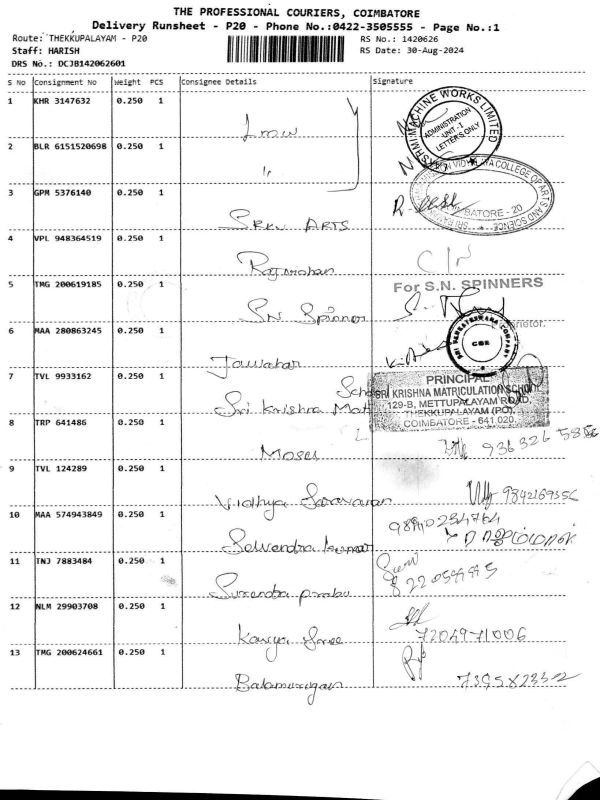 THE PROFESSIONAL COURIERS, COIMBATORE
Delivery Runsheet - P20 - Phone No.:0422-3505555 - Page No.:1
Route: THEKKUPALAYAM - P20
RS No.: 1420626
Staff: HARISH
RS Date: 30-Aug-2024
DRS No.: DCJB142062601
S No Consignment No Weight PCS Consignee Details Signature
1 KHR 3147632 0.250 1
LMW
MACHINE WORKS LIMITED
ADMINISTRATION
UNIT - 1
LETTERS ONLY
2 BLR 6151520698 0.250 1
"
COLLEGE OF ARTS AND SCIENCE
3 GPM 5376140 0.250 1
SRKV ARTS
COIMBATORE - 20
4 VPL 948364519 0.250 1
Rajmohan
5 TMG 200619185 0.250 1
For S.N. SPINNERS
SN Spinner
6 MAA 280863245 0.250 1
SRI VENKATESWARA COMPANY
CBE
Jawahar
7 TVL 9933162 0.250 1
PRINCIPAL
Sri Krishna Mat
SRI KRISHNA MATRICULATION SCHOOL
129-B, METTUPALAYAM ROAD,
THEKKUPALAYAM (PO),
COIMBATORE - 641 020.
8 TRP 641486 0.250 1
Moses
9 TVL 124289 0.250 1
Vidhya Saravanan
10 MAA 574943849 0.250 1
Selvendra kumar
11 TNJ 7883484 0.250 1
Surendra prabu
12 NLM 29903708 0.250 1
Kavya Sree
7204971006
13 TMG 200624661 0.250 1
Balamurugan